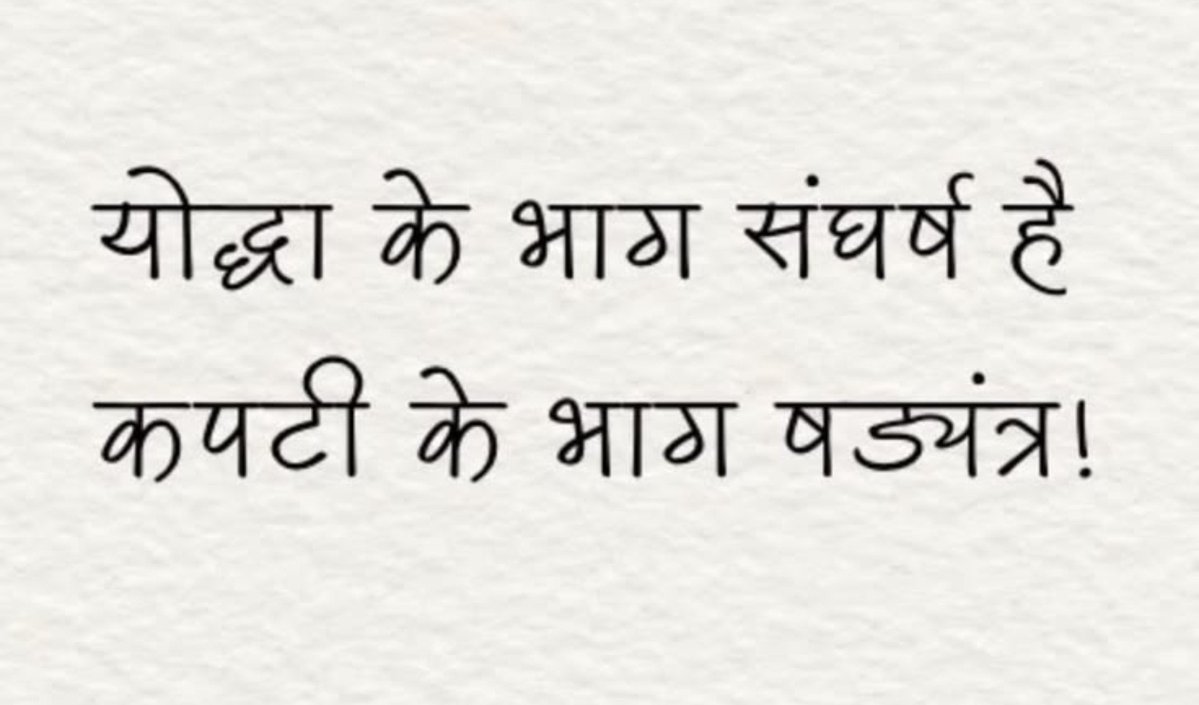 योद्धा के भाग संघर्ष है
कपटी के भाग षड्यंत्र!